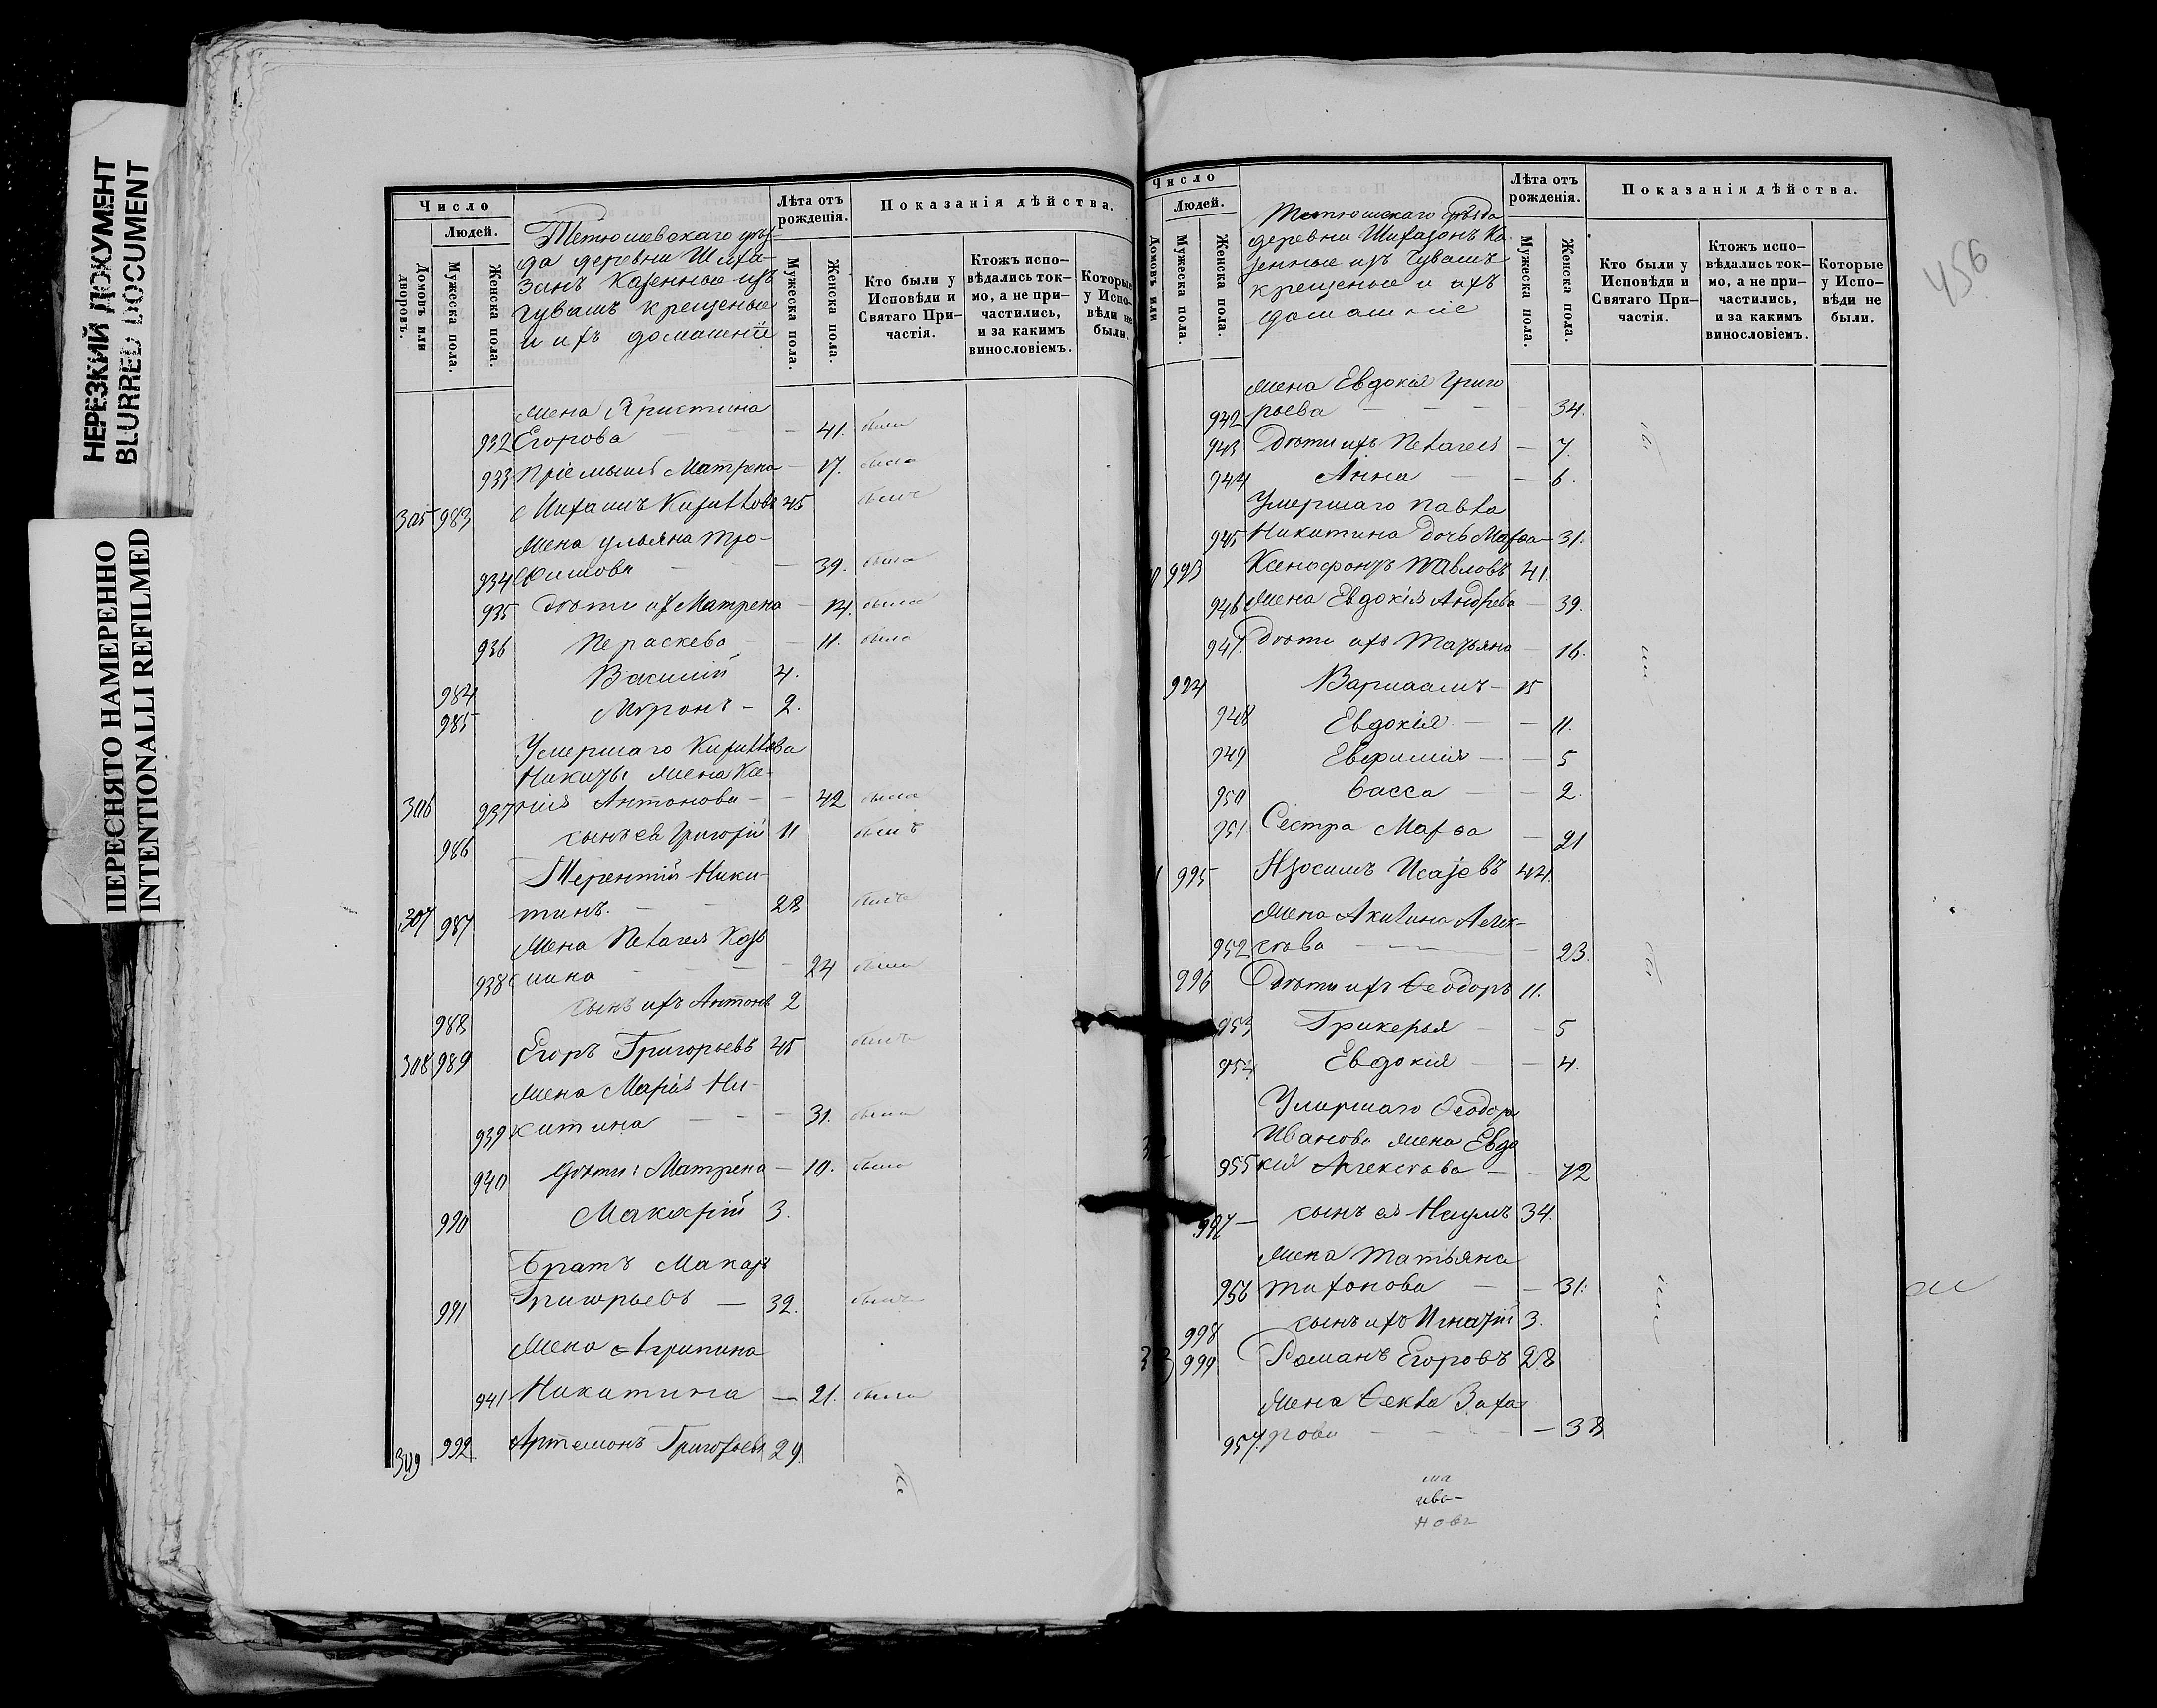 НЕРЕЗКИЙ ДОКУМЕНТ
BLURRED DOCUMENT
ПЕРЕСНЯТО НАМЕРЕННО
INTENTIONALLI REFILMED
Число
Людей.
Домовъ или дворовъ.
Мужеска пола.
Женска пола.
Тетюшевскаго уѣз-
да деревни Шиха-
занъ Казенные изъ
чувашъ крещеные
и ихъ домашніе
Лѣта отъ рожденія.
Мужеска пола.
Женска пола.
Показанія дѣйства.
Кто были у Исповѣди и Святаго При-частія.
Ктожъ испо-вѣдались ток-мо, а не при-частились, и за какимъ винословіемъ.
Которые у Испо-вѣди не были.
Жена Христина
932 Егорова — — 41. была
933 Пріемышъ Матрена — 17. была
305 983 Михаилъ Кириллов 45 былъ
Жена Ульяна Тро-
934 фимова — — 39. была
935 Дѣти их Матрена — 14. была
936 Пераскева — — 11. была
984 Василій 4.
985 Миронъ — 2.
Умершаго Кириллова
Никиты жена Ка-
306 937 Антонова — — 42 была
986 сынъ ея Григорій 11 былъ
Терентій Ники-
307 987 тинъ. — — 28 былъ
Жена Пелагея Козь
938 мина — — — 24 была
988 сынъ ихъ Антонъ 2
308 989 Егоръ Григорьевъ 45 былъ
Жена Марія Ни-
939 китина — — — 31. была
940 Дѣти: Матрена — 10. была
990 Макарій 3.
Братъ Макаръ
991 Григорьевъ — 32. былъ
Жена Агрипина
941 Никитина — 21. была
309 992 Артемонъ Григорьевъ 29.
456
Число
Людей.
Домовъ или
Мужеска пола.
Женска пола.
Тетюшскаго уѣзда
деревни Шихазонъ Ка-
зенные изъ Чувашъ
крещеные и ихъ
домашніе
Лѣта отъ рожденія.
Мужеска пола.
Женска пола.
Показанія дѣйства.
Кто были у Исповѣди и Святаго При-частія.
Ктожъ испо-вѣдались ток-мо, а не при-частились, и за какимъ винословіемъ.
Которые у Испо-вѣди не были.
Жена Евдокія Григо
942 рьева — — — 34.
943 Дѣти ихъ Пелагея — 7.
944 Анна — — 6.
Умершаго Павла
945 Никитина дочь Марѳа — 31.
993 Ксенофонтъ Павловъ 41.
946 Жена Евдокія Андрева — 39.
947. Дѣти ихъ Татьяна — 16.
994 Варлаамъ — 15
948 Евдокія — — 11.
949 Евфимія — — 5
950 Васса — — 2.
951 Сестра Марѳа — 21
995 Изосимъ Исаіевъ 44.
Жена Акилина Алек-
952 сѣева — — — 23.
996 Дѣти ихъ Ѳеодоръ 11.
953 Гликерья — — 5
954 Евдокія — — 4.
Умершаго Ѳеодора
Иванова жена Евдо
955 кія Алексѣева — — 72
997 — сынъ ея Наумъ 34.
Жена Татьяна
956 Тихонова — — 31.
998 сынъ ихъ Игнатій 3.
999 Романъ Егоровъ 28
Жена Ѳекла Заха
957. рова — — — 38
ма
ива-
новъ